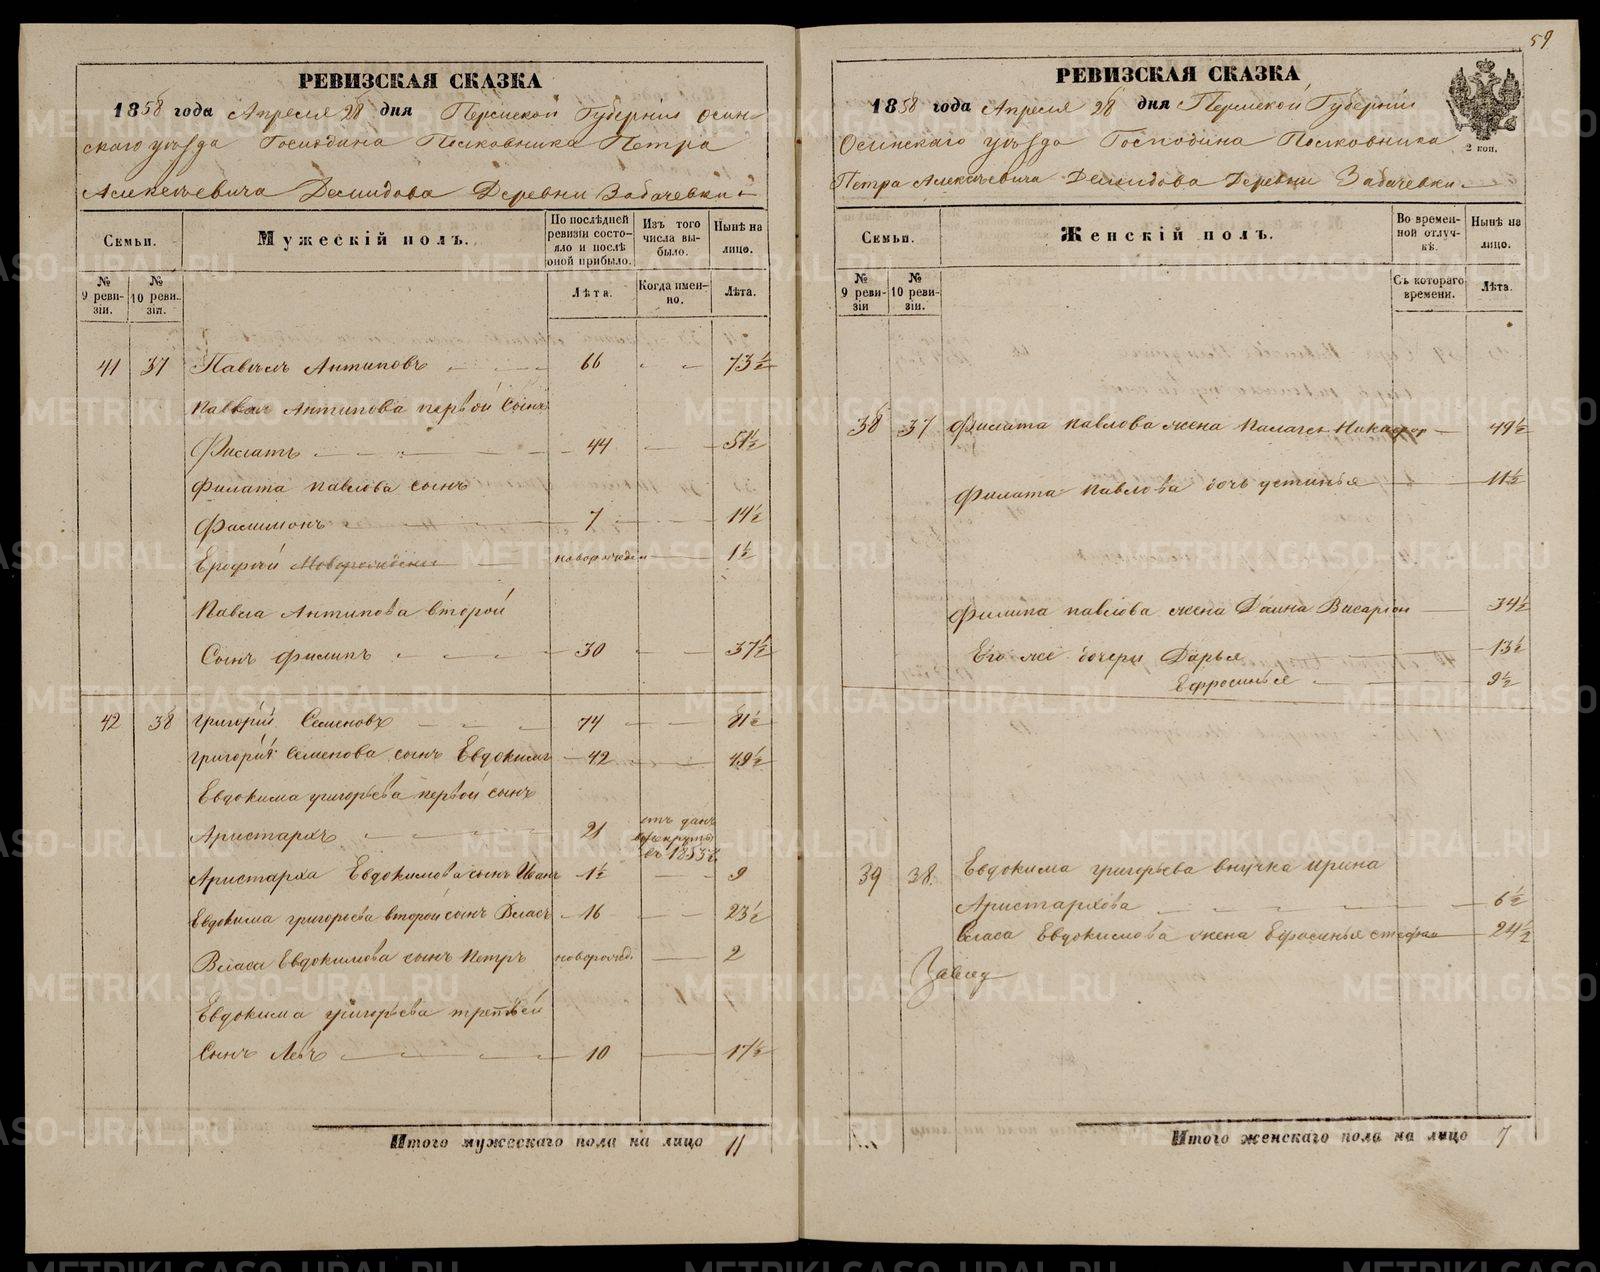 59
РЕВИЗСКАЯ СКАЗКА
1858 года Апреля 28 дня Пермской Губернии Осин-
скаго уѣзда Господина Полковника Петра
Алексѣевича Демидова Деревни Забачевки
Семьи.
Мужескій полъ.
По послѣдней ревизіи состояло и послѣ оной прибыло.
Изъ того числа выбыло.
Нынѣ на лицо.
№ 9 ревизіи.
№ 10 ревизіи.
Лѣта.
Когда именно.
Лѣта.
41 37 Павелъ Антиповъ 66 73½
Павла Антипова первой сынъ
Филатъ 44 51½
Филата Павлова сынъ
Филимонъ 7 14½
Ерофѣй новорожден 1½
Павла Антипова второй
Сынъ Филипъ 30 37½
42 38 Григорій Семеновъ 74 81½
Григорія Семенова сынъ Евдокимъ 42 49½
Евдокима григорьева первой сынъ
Аристархъ 21 отъ данъ в рекруты въ 1853 г.
Аристарха Евдокимова сынъ Иванъ 1½ 9
Евдокима григорьева второй сынъ Власъ 16 23½
Власа Евдокимова сынъ Петръ новорожд. 2
Евдокима григорьева третьей
Сынъ Левъ 10 17½
Итого мужескаго пола на лицо 11
РЕВИЗСКАЯ СКАЗКА
1858 года Апреля 28 дня Пермской Губерніи
Осинскаго уѣзда Господина Полковника
Петра Алексѣевича Демидова Деревни Забачевки
2 коп.
Семьи.
Женскій полъ.
Во временной отлучкѣ.
Нынѣ на лицо.
№ 9 ревизіи
№ 10 ревизіи.
Съ котораго времени.
Лѣта.
38 37 Филата Павлова жена Палагея Никифор 49½
Филата Павлова дочь устинья 11½
Филипа павлова жена Домна Висаріон 34½
Его же дочери Дарья 13½
Ефросинья 9½
39 38. Евдокима григорьева внучка Ирина
Аристархова 6½
Власа Евдокимова жена Ефросинья стефан 24½
Итого женскаго пола на лицо 7
METRIKI.GASO-URAL.RU